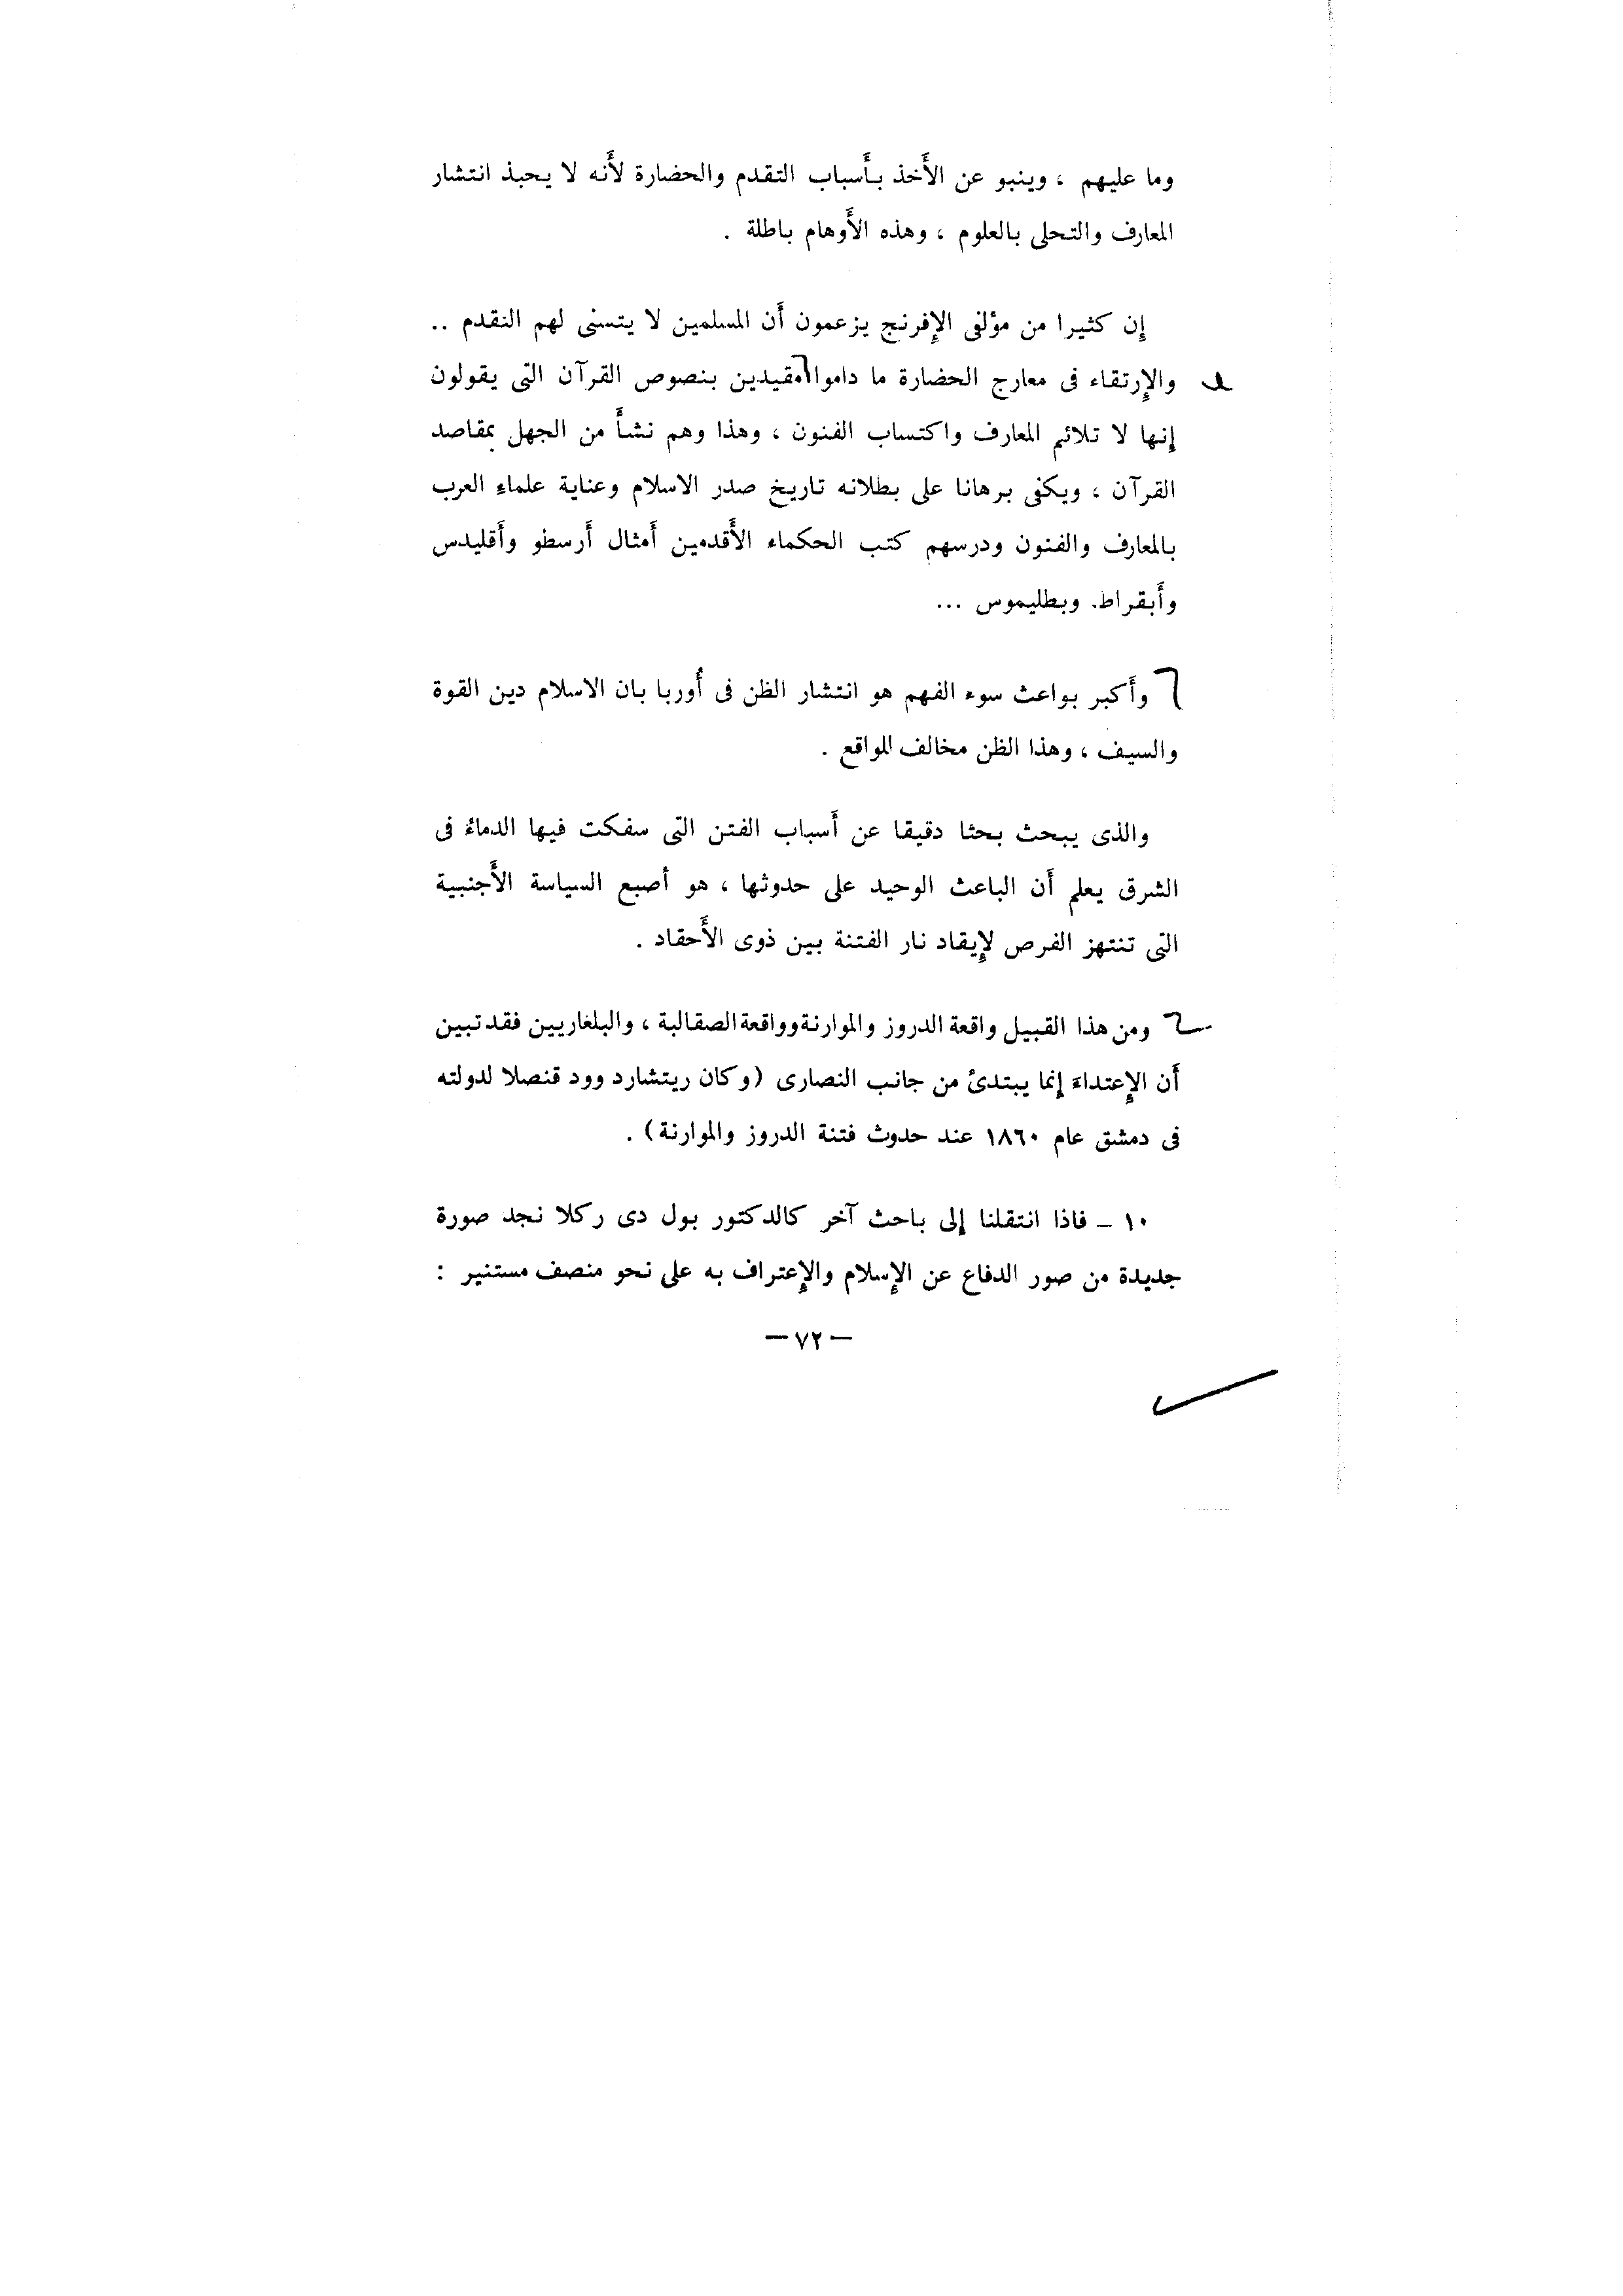 وما عليهم ، وينبو عن الأَخذ بأَسباب التقدم والحضارة لأَنه لا يحبذ انتشار
المعارف والتحلى بالعلوم ، وهذه الأَوهام باطلة .
إن كثيرا من مؤلفى الإفرنج يزعمون أَن المسلمين لا يتسنى لهم التقدم ..
والإرتقاء فى معارج الحضارة ما داموا مقيدين بنصوص القرآن التى يقولون
إنها لا تلائم المعارف واكتساب الفنون ، وهذا وهم نشأَ من الجهل بمقاصد
القرآن ، ويكفى برهانا على بطلانه تاريخ صدر الاسلام وعناية علماءِ العرب
بالمعارف والفنون ودرسهم كتب الحكماء الأَقدمين أَمثال أَرسطو وأَقليدس
وأَبقراط. وبطليموس ...
وأَكبر بواعث سوء الفهم هو انتشار الظن فى أُوربا بان الاسلام دين القوة
والسيف ، وهذا الظن مخالف للواقع .
والذى يبحث بحثا دقيقا عن أَسباب الفتن التى سفكت فيها الدماءُ فى
الشرق يعلم أَن الباعث الوحيد على حدوثها ، هو أصبع السياسة الأَجنبية
التى تنتهز الفرص لإيقاد نار الفتنة بين ذوى الأَحقاد .
ومن هذا القبيل واقعة الدروز والموارنة وواقعة الصقالبة ، والبلغاريين فقد تبين
أَن الإعتداءَ إنما يبتدئ من جانب النصارى (وكان ريتشارد وود قنصلا لدولته
فى دمشق عام ١٨٦٠ عند حدوث فتنة الدروز والموارنة) .
١٠ – فاذا انتقلنا إلى باحث آخر كالدكتور بول دى ركلا نجد صورة
جديدة من صور الدفاع عن الإسلام والإعتراف به على نحو منصف مستنير :
— ٧٢ —